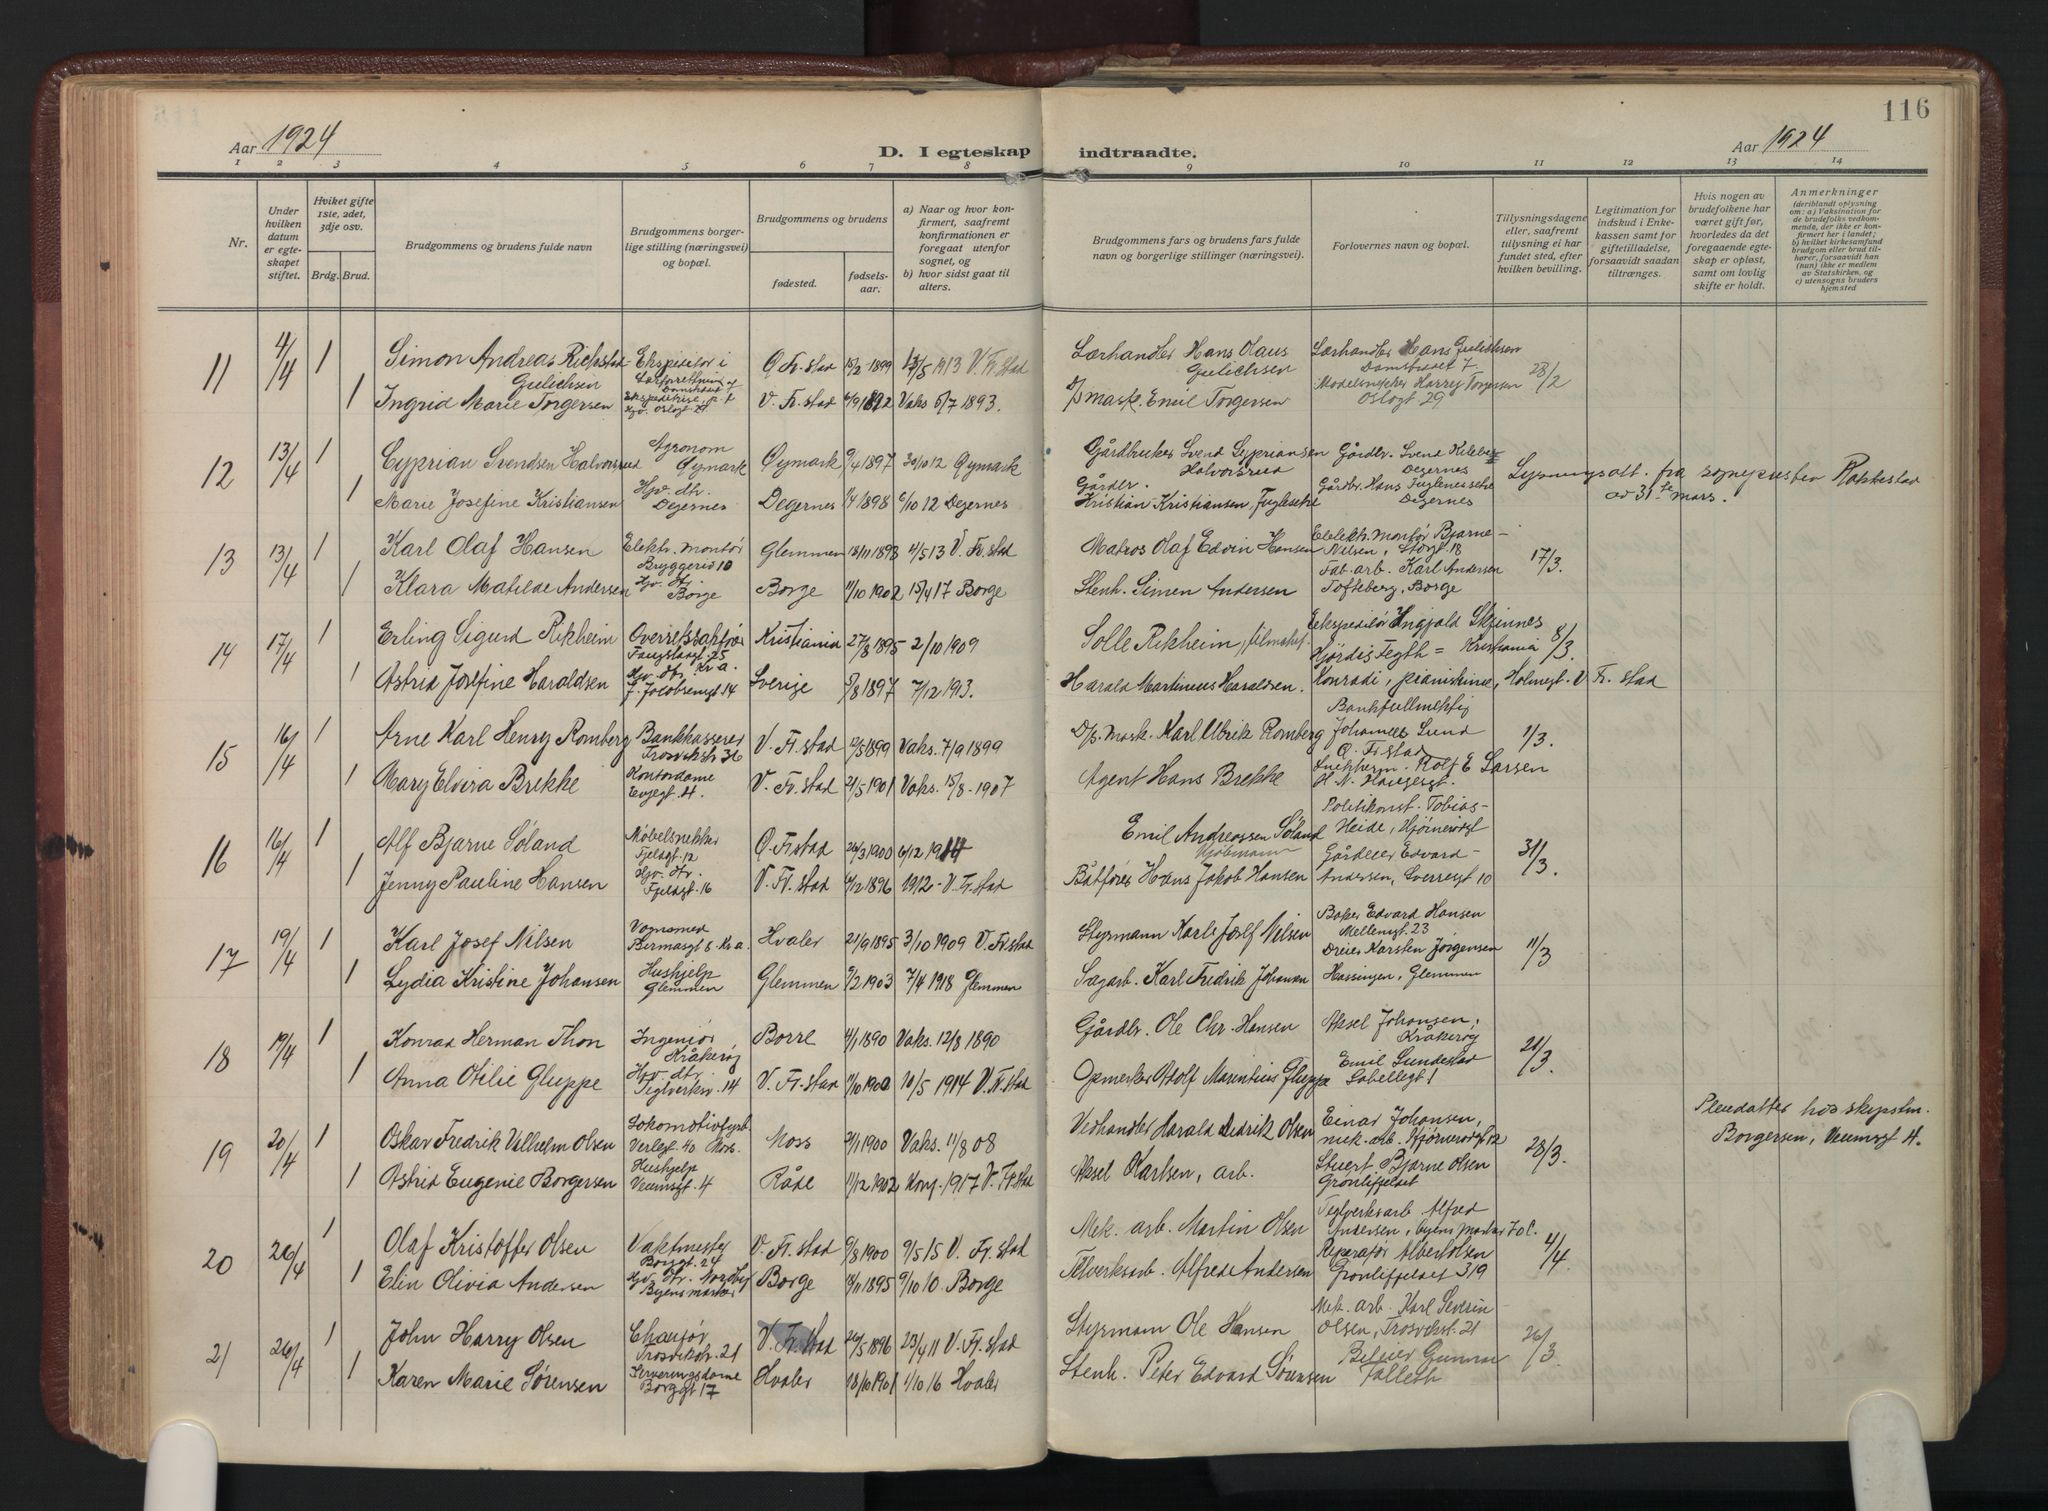 116
Aar 1924
D. I egteskap indtraadte.
Aar 1924
1 2 3 4 5 6 7 8 9 10 11 12 13 14
Nr.
Under hvilken datum er egteskapet stiftet.
Hviket gifte 1ste, 2det, 3dje osv.
Brdg. Brud.
Brudgommens og brudens fulde navn
Brudgommens borgerlige stilling (næringsvei) og bopæl.
Brudgommens og brudens
fødested.
fødselsaar.
a) Naar og hvor konfirmert, saafremt konfirmationen er foregaat utenfor sognet, og
b) hvor sidst gaat til alters.
Brudgommens fars og brudens fars fulde navn og borgerlige stillinger (næringsvei).
Forlovernes navn og bopæl.
Tillysningsdagene eller, saafremt tillysning ei har fundet sted, efter hvilken bevilling.
Legitimation for indskud i Enkekassen samt for giftetilladelse, forsaavidt saadan tiltrænges.
Hvis nogen av brudefolkene har været gift før, hvorledes da det foregaaende egteskap er opløst, samt om lovlig skifte er holdt.
Anmerkninger
(deriblandt oplysning om: a) Vaksination for de brudefolks vedkommende, der ikke er konfirmert her i landet; b) hvilket kirkesamfund brudgom eller brud tilhører, forsaavidt han (hun) ikke er medlem av Statskirken, og c) utensogns bruders hjemsted
11 4/4 1 Simon Andreas Richstad Gulichsen Ekspeditør i Lærforretning Ø Fr. stad 15/2 1899 13/5 1913 V. Fr. stad Lærhandler Hans Olaus Gulichsen Lærhandler Hans Gulichsen Damstrædet 7 28/2
1 Ingrid Marie Torgersen V. Fr. stad 6/9 1892 Vaks 6/7 1893. D/p mask. Emil Torgersen Modelsnekker Harry Torgersen Oslogt 29
12 13/4 1 Cyprian Svendsen Halvorsrud Agronom Øymark Øymark 9/4 1897 30/10 12 Øymark Gårdbruker Svend Cypriansen Halvorsrud Gårdbr. Svend Kilebu Degernes Lysningsatt. fra sogneprsten Rakkestad av 31te mars.
1 Marie Josefine Kristiansen Hjv. dtr. Degernes Degernes 1/4 1898 6/10 12 Degernes Gårdbr. Kristian Kristiansen, Fuglesete Gårdbr. Hans Fuglenesete Degernes
13 13/4 1 Karl Olaf Hansen Elektr. montør Bryggeriv 10 Glemmen 18/11 1898 4/5 13 V. Fr. stad Matros Olaf Edvin Hansen Elektr. montør Bjarne Nilsen, Storgt 18 17/3.
1 Klara Matilde Andersen Hjv. dtr. Borge Borge 11/10 1902 15/4 17 Borge Stenh. Simen Andersen Fab. arb. Karl Andersen Tofteberg, Borge
14 17/4 1 Erling Sigurd Rikheim Overretssakfører Kr.a. Kristiania 27/8 1895 2/10 1909 Solle Rikheim, Ekspeditør Ingjald Skjinnes 8/3.
1 Astrid Josefine Haraldsen Hjv. dtr. J. Jacobsensgt 14 Sverige 5/8 1897 7/12 1913. Harald Martinius Haraldsen. Hjørdis Fegth = Kristiania Konradi, pianistinne, Holmegt. V Fr. stad
15 16/4 1 Arne Karl Henry Romberg Bankkasserer Trosvikstr 36 V. Fr. stad 12/5 1899 Vaks. 7/9 1899 D/p. mask. Karl Ulrik Romberg Bankfullmektig Johannes Lund Ø. Fr. stad 1/3.
1 Mary Elvira Brekke Kontordame Evjegt. 4. V. Fr. stad 21/5 1901 Vaks. 15/8 - 1907 Agent Hans Brekke Rolf E Larsen H. N. Haugesgt.
16 16/4 1 Alf Bjarne Søland Møbelsnekker Fjeldgt. 12 Ø. Fr stad 26/3 1900 6/12 1914 Emil Andreassen Søland Politikonst. Tobias Heide, Hjørnerødgt 31/3.
1 Jenny Pauline Hansen Hjv. dtr. Fjeldgt. 16 V. Fr. stad 6/12 1896 1912 - V. Fr. stad Båtfører Hans Jakob Hansen Gårdeier Edvard Andersen, Sverresgt 10
17 19/4 1 Karl Josef Nilsen Vognsmed Kr a. Hvaler 21/9 1895 3/10 1909 V. Fr. stad Styrmann Karl Josef Nilsen Baker Edvard Hansen Mellemgt. 23 11/3
1 Lydia Kristine Johansen Hushjelp Glemmen Glemmen 9/2 1903 7/4 1918 Glemmen Sagarb. Karl Fredrik Johansen Dreier Karsten Jørgensen Hassingen, Glemmen
18 19/4 1 Konrad Herman Thon Ingeniør Kråkerøy Borre 4/1 1890 Vaks. 12/8 1890 Gårdbr. Ole Chr. Hansen Aksel Johansen, Kråkerøy 21/3.
1 Anna Otilie Gluppe Hjv dtr. Teglverksv. 14 V. Fr. stad 11/10 1900 10/5 1914 V. Fr. stad Opmerker Adolf Marentius Gluppe Emil Lundestad Labellegt 1
19 20/4 1 Oskar Fredrik Vilhelm Olsen Lokomotivfyrb. Verlegt 40 Moss. Moss 21/1 1900 Vaks. 11/8 08 Vedhandler Harald Dedrik Olsen Einar Johansen, mek. arb. Hjørnerødgt 12 28/3. Pleiedatter hos skypstm. Borgersen, Veumsgt 4.
1 Astrid Eugenie Borgersen Hushjelp Veumsgt. 4 Råde 11/12 1902 Konf. 1917 V. Fr. stad Aksel Karlsen, arb. Stuert. Bjarne Olsen Grønlifjeldet
20 26/4 1 Olaf Kristoffer Olsen Vaktmester Borggt. 24 V. Fr. stad 9/8 1900 9/5 15 V. Fr. stad Mek. arb. Martin Olsen Teglverksarb Alfred Andersen, byens marker 70 C. 4/4.
1 Elin Olivia Andersen Hjv. dtr. Nordby Byens marker Borge 18/11 1895 9/10 10 Borge Telverksarb. Alfred Andersen Reparatør Albert Olsen Grønlifjeldet 319
21 26/4 1 John Harry Olsen Chauffør Trosvikstr. 21 V. Fr. stad 26/5 1896 23/4 11 V. Fr. stad Styrmann Ole Hansen Mek. arb. Karl Severin Olsen, Trosvikst. 21 26/3
1 Karen Marie Sørensen Serveringsdame Borggt 17 Hvaler 18/10 1901 1/10 16 Hvaler Stenh. Peter Edvard Sørensen Bileier Gunnar